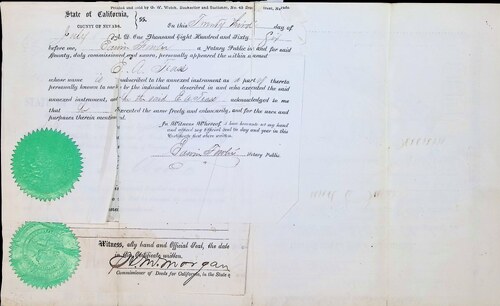 Printed and sold by
State of California, } ss.
COUNTY OF NEVADA.
On this Twenty third day of
July A. D. One Thousand Eight Hundred and Sixty Six
before me, Edwin a Notary Public in and for said
County, duly commissioned and sworn, personally appeared the within named
E. A.
whose name is subscribed to the annexed instrument as a part thereto
personally known to me to be the individual described in and who executed the said
annexed instrument, who the said acknowledged to me
that he executed the same freely and voluntarily, and for the uses and
purposes therein mentioned.
In Witness Whereof I have hereunto set my hand
and affixed my Official Seal the day and year in this
Certificate first above written.
Notary Public
Witness, my hand and Official Seal, the date
in this Certificate written.
Morgan
Commissioner of Deeds for California, in the State